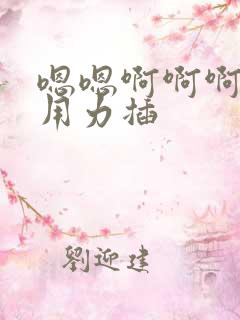 嗯嗯啊啊啊
用力插
劉迎建